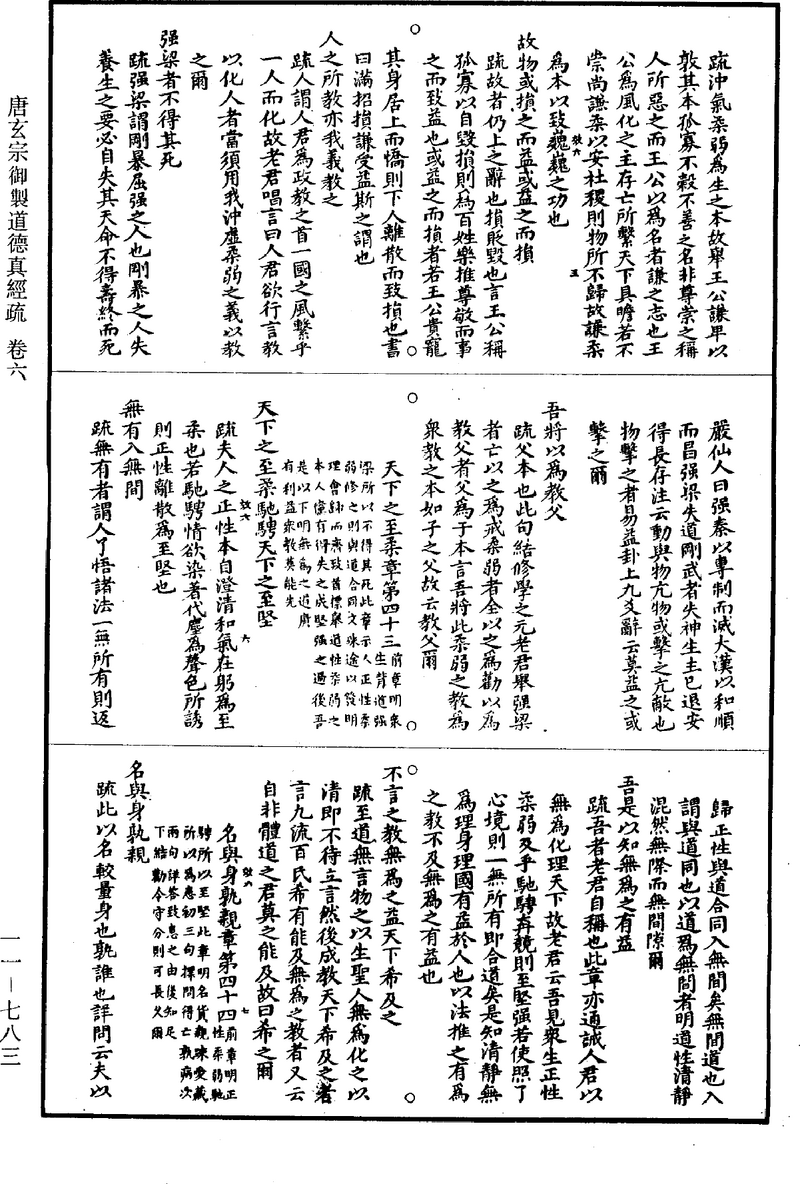 疏沖氣柔弱爲生之本故舉王公謙卑以
敦其本孤寡不穀不善之名非尊崇之稱
人所惡之而王公以爲名者謙之志也王
公爲風化之主存亡所繫天下具瞻若不
崇尚謙柔以安社稷則物所不歸故謙柔
爲本以致巍巍之功也
故物或損之而益或益之而損
疏故者仍上之辭也損貶毀也言王公稱
孤寡以自毀損則爲百姓樂推尊敬而事
之而致益也或益之而損者若王公貴寵
其身居上而憍則下人離散而致損也書
曰滿招損謙受益斯之謂也
人之所教亦我義教之
疏人謂人君爲政教之首一國之風繫乎
一人而化故老君唱言曰人君欲行言教
以化人者當須用我沖虛柔弱之義以教
之爾
强梁者不得其死
疏强梁謂剛暴屈强之人也剛暴之人失
養生之要必自失其天命不得壽終而死
嚴仙人曰强秦以專制而滅大漢以和順
而昌强梁失道剛武者失神生主已退安
得長存注云動與物亢物或擊之亢敵也
物擊之者易益卦上九爻辭云莫益之或
擊之爾
吾將以爲教父
疏父本也此句結修學之元老君舉强梁
者亡以之爲戒柔弱者全以之爲勸以爲
教父者父爲于本言吾將此柔弱之教爲
衆教之本如子之父故云教父爾
天下之至柔章第四十三前章明衆生背道强
梁所以不得其死此章示人正性柔
弱修之則與道合同文殊途以發明
理會歸而齊致首標舉道性柔弱之
本人儻有得失之戒堅强之過後吾
是以下明無爲之道廣
有利益衆教莫能先
天下之至柔馳騁天下之至堅
疏夫人之正性本自澄清和氣在躬爲至
柔也若馳騁情欲染著代塵爲聲色所誘
則正性離散爲至堅也
無有入無間
疏無有者謂人了悟諸法一無所有則返
歸正性與道合同入無間矣無間道也入
謂與道同也以道爲無間者明道性清靜
混然無際而無間隙爾
吾是以知無爲之有益
疏吾者老君自稱也此章亦通誡人君以
無爲化理天下故老君云吾見衆生正性
柔弱及乎馳騁奔競則至堅强若使照了
心境則一無所有即合道矣是知清靜無
爲理身理國有益於人也以法推之有爲
之教不及無爲之有益也
不言之教無爲之益天下希及之
疏至道無言物之以生聖人無爲化之以
清即不待立言然後成教天下希及之者
言九流百氏希有能及無爲之教者又云
自非體道之君莫之能及故曰希之爾
名與身孰親章第四十四前章明正性柔弱馳
騁所以至堅此章明名貨親疎愛藏
所以爲患初三句標問得亡孰病次
兩句詳答致患之由後知足
下結勸令守分則可長久爾
名與身孰親
疏此以名較量身也孰誰也詳問云夫以
唐玄宗御製道德真經疏 卷六
一一－七八三